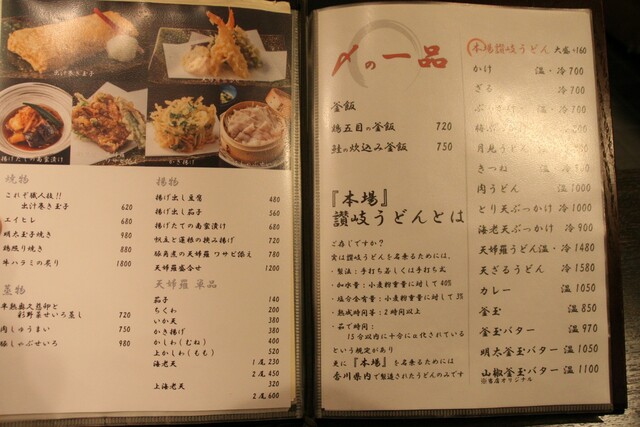 出汁巻き玉子
揚げたての南蛮漬け
かき揚げ
焼物
これぞ職人技!!
出汁巻き玉子 620
エイヒレ 680
明太玉子焼き 980
鶏照り焼き 880
牛ハラミの炙り 1800
蒸物
彩野菜せいろ蒸し 720
肉しゅうまい 750
豚しゃぶせいろ 980
揚物
揚げ出し豆腐 480
揚げ出し茄子 560
揚げたての南蛮漬け 680
帆立と蓮根の挟み揚げ 720
豚角煮の天婦羅 ワサビ添え 780
天婦羅盛合せ 1200
天婦羅 単品
茄子 140
ちくわ 200
いか天 380
かき揚げ 380
かしわ(むね) 400
上かしわ(もも) 520
海老天 1尾 230
2尾 450
上海老天 320
2尾 600
〆の一品
釜飯
鶏五目の釜飯 720
鮭の炊込み釜飯 750
『本場』
讃岐うどんとは
ご存じですか?
実は讃岐うどんを名乗るためには、
・製法:手打ち若しくは手打ち式
・加水量:小麦粉重量に対して40%
・塩分含有量:小麦粉重量に対して3%
・熟成時間等:2時間以上
・茹で時間:
15分以内に十分にα化されている
という規定があり
更に『本場』を名乗るためには
香川県内で製造されたうどんのみです
本場讃岐うどん 大盛+160
かけ 温・冷 700
ざる 冷 700
ぶっかけ 温・冷
月見うどん
きつね 温
肉うどん 温 1000
とり天ぶっかけ 冷 1000
海老天ぶっかけ 冷 900
天婦羅うどん 温・冷 1480
天ざるうどん 冷 1580
カレー 温 1050
釜玉 温 850
釜玉バター 温 970
明太釜玉バター 温 1050
山椒釜玉バター 温 1100
※当店オリジナル